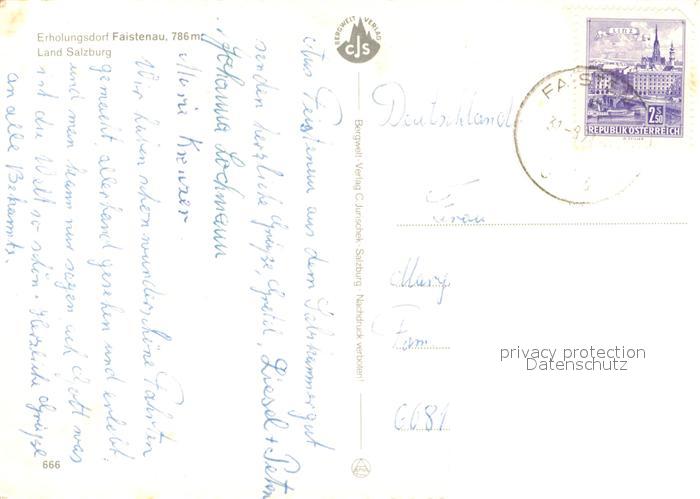 Erholungsdorf Faistenau, 786 m
Land Salzburg
BERGWELT VERLAG
CJS
LINZ
2.50
REPUBLIK ÖSTERREICH
FAIST
Aus Faistenau aus dem Salzkammergut
senden herzliche Grüße, Gretl, Liesel + Peter
Johanna Lochmann
Maria Kreuzer.
Wir haben schon wunderschöne Fahrten
gemacht, allerhand gesehen und erlebt.
und man kann nur sagen ach Gott was
ist die Welt so schön. Herzliche Grüße
an alle Bekannte.
Bergwelt-Verlag C. Jurischek · Salzburg · Nachdruck verboten!
Deutschland
Frau
Marg
6681
privacy protection
Datenschutz
666